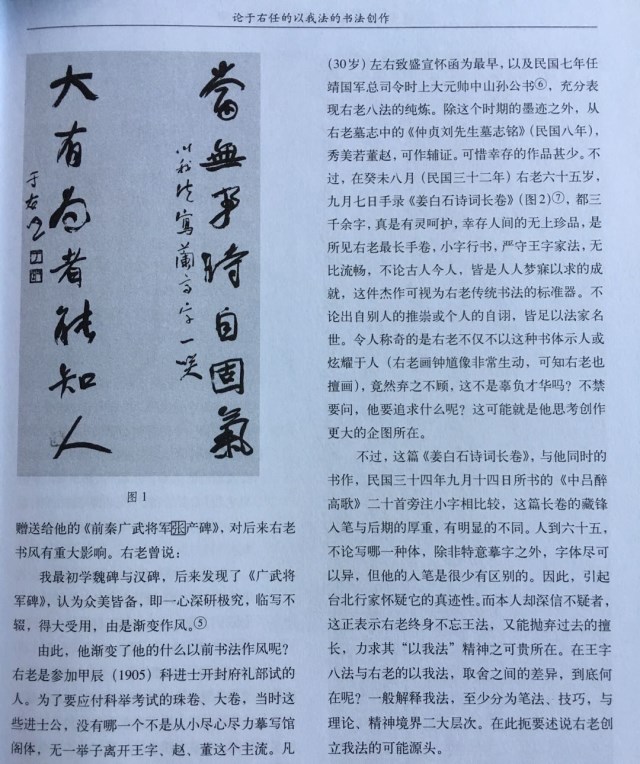 论于右任的以我法的书法创作
当無事時自固氣
以我法寫蘭亭字一笑
大有為者能知人
于右任
图1
赠送给他的《前秦广武将军张产碑》，对后来右老
书风有重大影响。右老曾说：
我最初学魏碑与汉碑，后来发现了《广武将
军碑》，认为众美皆备，即一心深研极究，临写不
辍，得大受用，由是渐变作风。⑤
由此，他渐变了他的什么以前书法作风呢？
右老是参加甲辰（1905）科进士开封府礼部试的
人。为了要应付科举考试的珠卷、大卷，当时这
些进士公，没有哪一个不是从小尽心尽力摹写馆
阁体，无一举子离开王字、赵、董这个主流。凡
(30岁）左右致盛宣怀函为最早，以及民国七年任
靖国军总司令时上大元帅中山孙公书⑥，充分表
现右老八法的纯炼。除这个时期的墨迹之外，从
右老墓志中的《仲贞刘先生墓志铭》（民国八年），
秀美若董赵，可作辅证。可惜幸存的作品甚少。不
过，在癸未八月（民国三十二年）右老六十五岁，
九月七日手录《姜白石诗词长卷》（图2）⑦，都三
千余字，真是有灵呵护，幸存人间的无上珍品，是
所见右老最长手卷，小字行书，严守王字家法，无
比流畅，不论古人今人，皆是人人梦寐以求的成
就，这件杰作可视为右老传统书法的标准器。不
论出自别人的推崇或个人的自诩，皆足以法家名
世。令人称奇的是右老不仅不以这种书体示人或
炫耀于人（右老画钟馗像非常生动，可知右老也
擅画），竟然弃之不顾，这不是辜负才华吗？不禁
要问，他要追求什么呢？这可能就是他思考创作
更大的企图所在。
不过，这篇《姜白石诗词长卷》，与他同时的
书作，民国三十四年九月十四日所书的《中吕醉
高歌》二十首旁注小字相比较，这篇长卷的藏锋
入笔与后期的厚重，有明显的不同。人到六十五，
不论写哪一种体，除非特意摹字之外，字体尽可
以异，但他的入笔是很少有区别的。因此，引起
台北行家怀疑它的真迹性。而本人却深信不疑者，
这正表示右老终身不忘王法，又能抛弃过去的擅
长，力求其“以我法”精神之可贵所在。在王字
八法与右老的以我法，取舍之间的差异，到底何
在呢？一般解释我法，至少分为笔法、技巧，与
理论、精神境界二大层次。在此扼要述说右老创
立我法的可能源头。